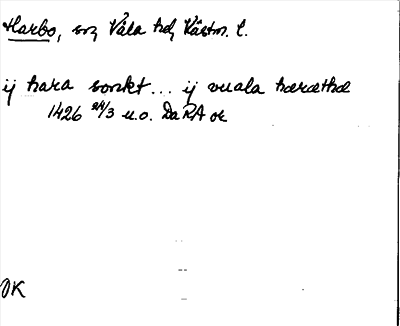 Harbo, sn, Våla hd, Västm. l.
ij hara sonkt... ij vuala hæræthæ
1426 24/3 u.o. DaRA or
OK